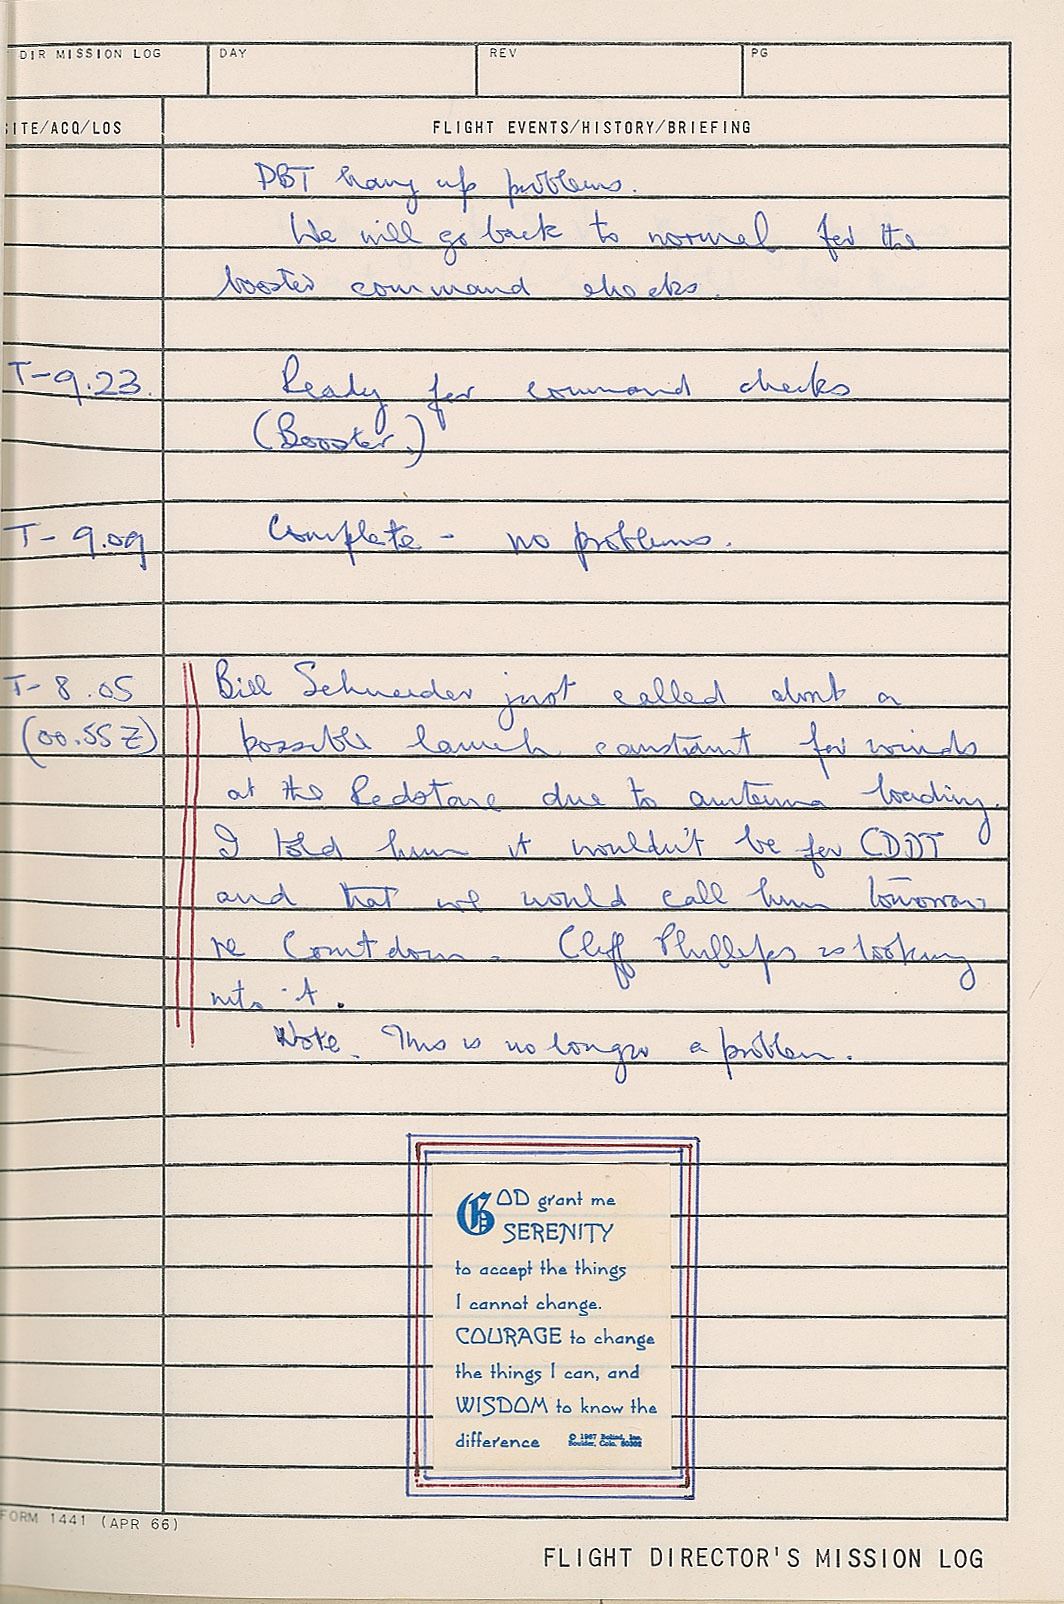 DIR MISSION LOG DAY REV PG
SITE/ACQ/LOS FLIGHT EVENTS/HISTORY/BRIEFING
DBT hang up problems.
We will go back to normal for the
booster command checks.
T-9.23. Ready for command checks
(Booster.)
T-9.09 Complete - no problems.
T-8.05 Bill Schneider just called about a
(00.55Z) possible launch constraint for winds
at the Redstone due to antenna loading.
I told him it wouldn't be for CDDT
and that we would call him tomorrow
re Countdown. Cliff Phillips is looking
into it.
Note. This is no longer a problem.
GOD grant me
SERENITY
to accept the things
I cannot change.
COURAGE to change
the things I can, and
WISDOM to know the
difference © 1967 Bolind, Inc.
Boulder, Colo. 80302
FORM 1441 (APR 66)
FLIGHT DIRECTOR'S MISSION LOG